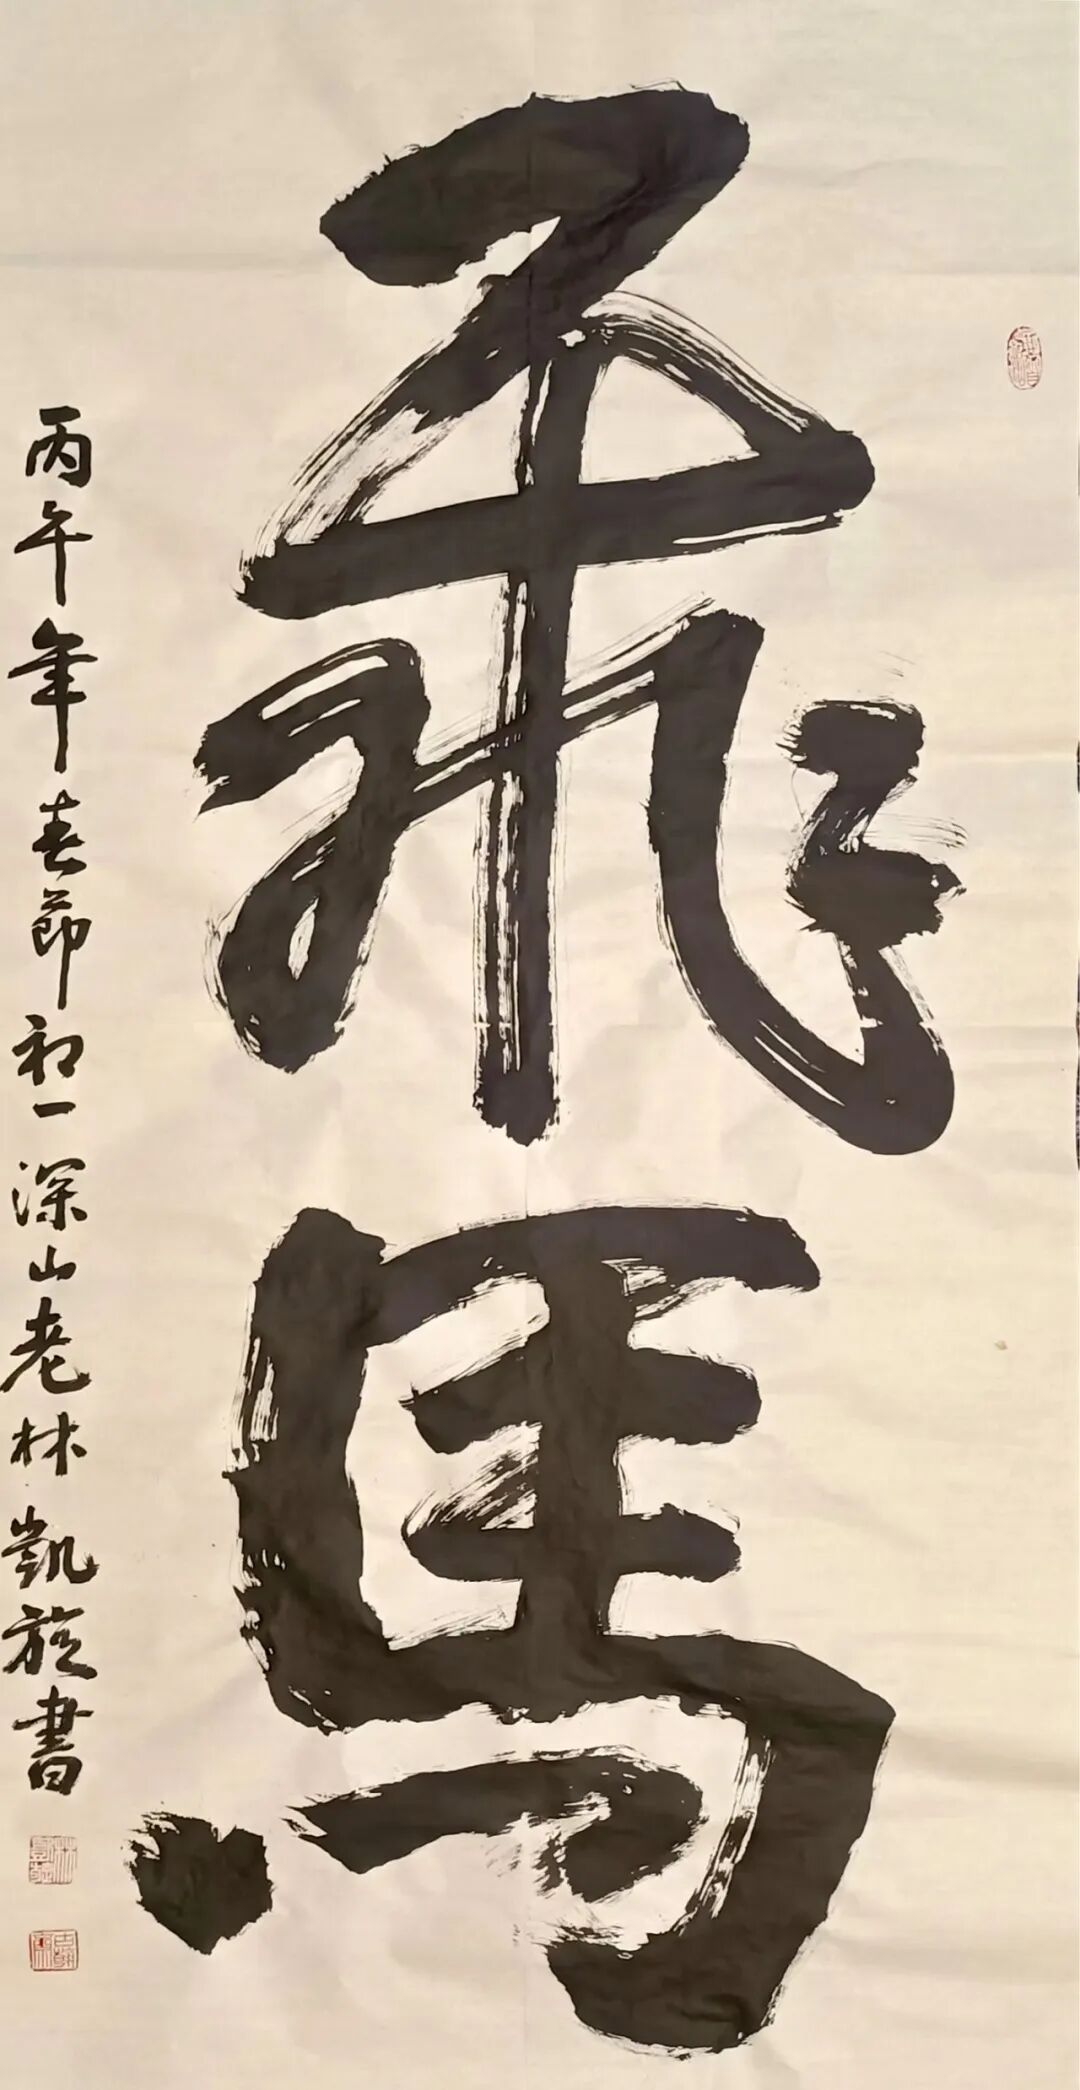 飛馬
丙午年春節初一深山老林凱旋書